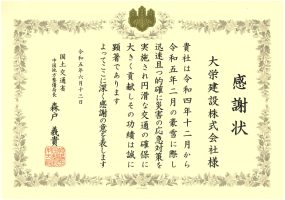 感謝状
大学建設株式会社様
貴社は令和四年十二月から
令和五年二月の豪雪に際し
迅速且つ的確に災害の応急対策を
実施され円滑な交通の確保に
大きく貢献しその功績は誠に
顕著であります
よってここに深く感謝の意を表します
令和五年六月十二日
国土交通省
中国地方整備局長
森戸義貴